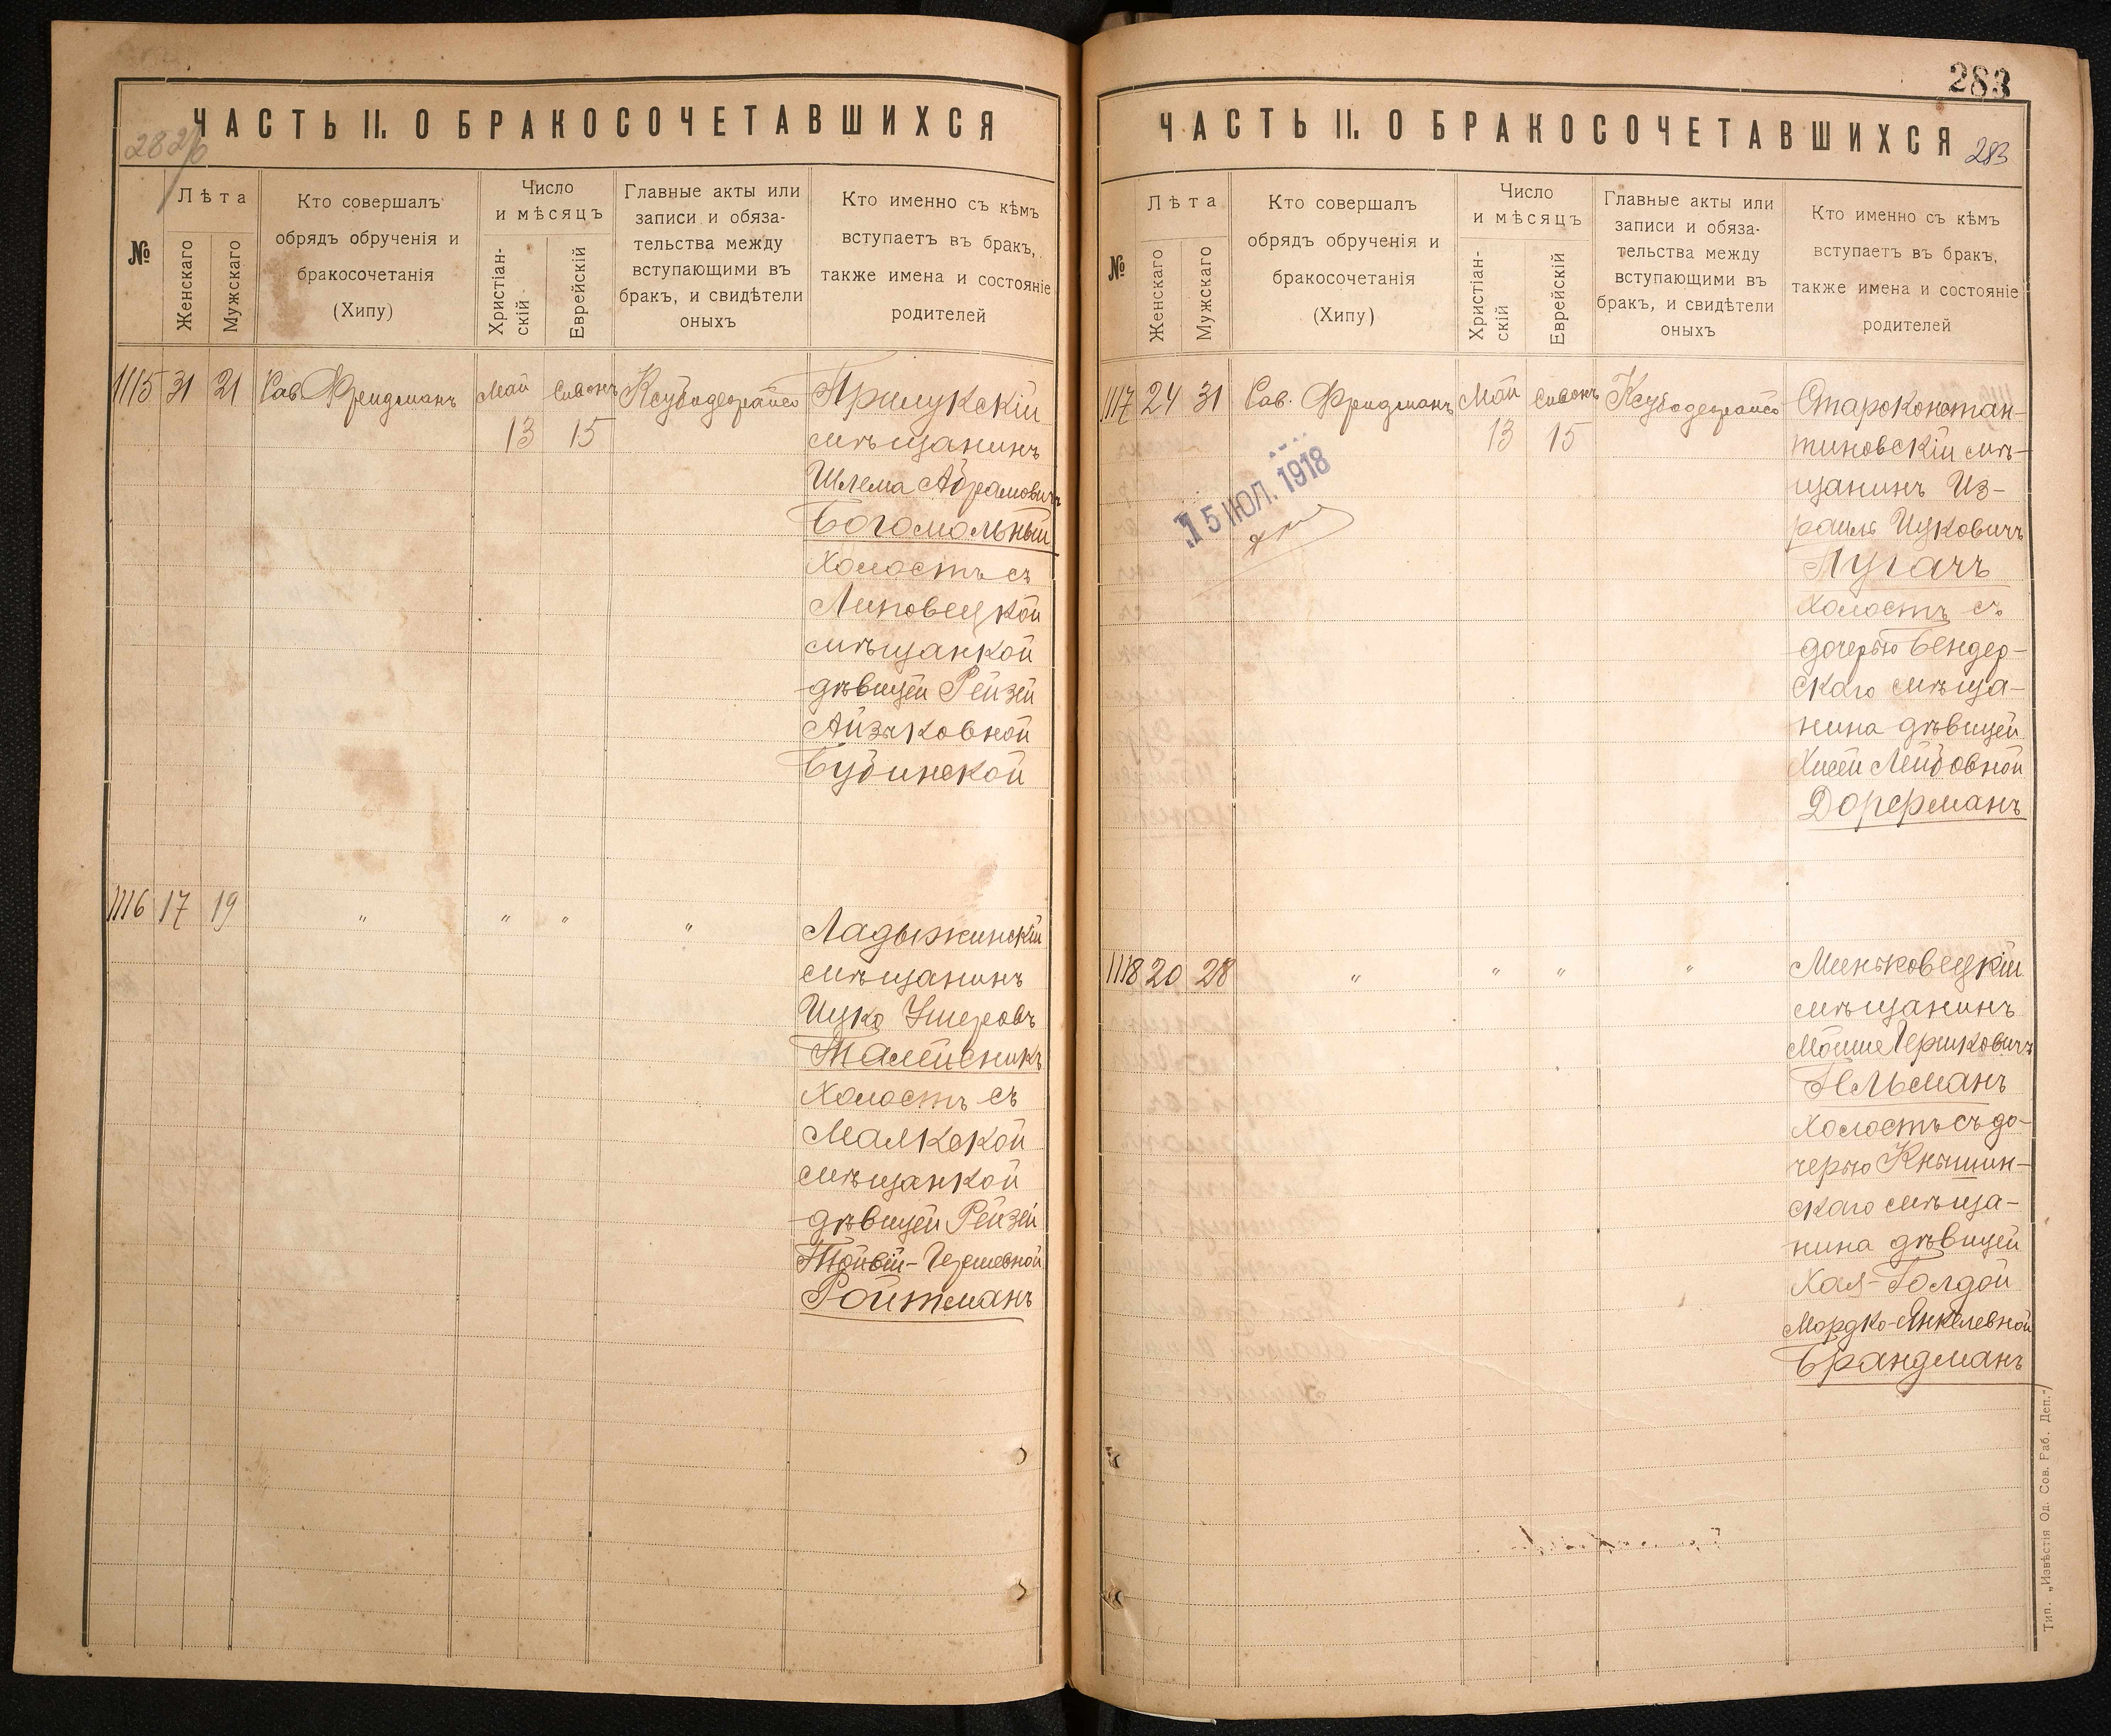 ЧАСТЬ II. О БРАКОСОЧЕТАВШИХСЯ
282/б
№
Лѣта
Женскаго
Мужскаго
Кто совершалъ
обрядъ обрученія и
бракосочетанія
(Хипу)
Число
и мѣсяцъ
Христіан-
скій
Еврейскій
Главные акты или
записи и обяза-
тельства между
вступающими въ
бракъ, и свидѣтели
оныхъ
Кто именно съ кѣмъ
вступаетъ въ бракъ,
также имена и состояніе
родителей
1115 31 21 Рав. Фридманъ Май Сивонъ Ксубодеграйсо Прилукскій
13 15 мѣщанинъ
Шлема Абрамовичъ
Богомольный
холостъ съ
Липовецкой
мѣщанкой
дѣвицей Рейзей
Айзиковной
Бубинской
1116 17 19 " " " " Ладыжинскій
мѣщанинъ
Ицко Ушеровъ
Талейсникъ
холостъ съ
Малкской
мѣщанкой
дѣвицей Рейзей
Тойвій-Гершевной
Ройтманъ
283
ЧАСТЬ II. О БРАКОСОЧЕТАВШИХСЯ
283
№
Лѣта
Женскаго
Мужскаго
Кто совершалъ
обрядъ обрученія и
бракосочетанія
(Хипу)
Число
и мѣсяцъ
Христіан-
скій
Еврейскій
Главные акты или
записи и обяза-
тельства между
вступающими въ
бракъ, и свидѣтели
оныхъ
Кто именно съ кѣмъ
вступаетъ въ бракъ,
также имена и состояніе
родителей
1117 24 31 Рав. Фридманъ Май Сивонъ Ксубодеграйсо Староконстан-
13 15 тиновскій мѣ-
щанинъ Из-
раиль Ицковичъ
Пугачъ
холостъ съ
дочерью Бендер-
скаго мѣща-
нина дѣвицей
Хисей Лейбовной
Дорфманъ
15 ІЮЛ. 1918
1118 20 28 " " " " Миньковецкій
мѣщанинъ
Мойше Гершковичъ
Гельманъ
холостъ съ до-
черью Кнышин-
скаго мѣща-
нина дѣвицей
Хая-Голдой
Мордко-Янкелевной
Брандманъ
Тип. „Извѣстія Од. Сов. Раб. Деп."